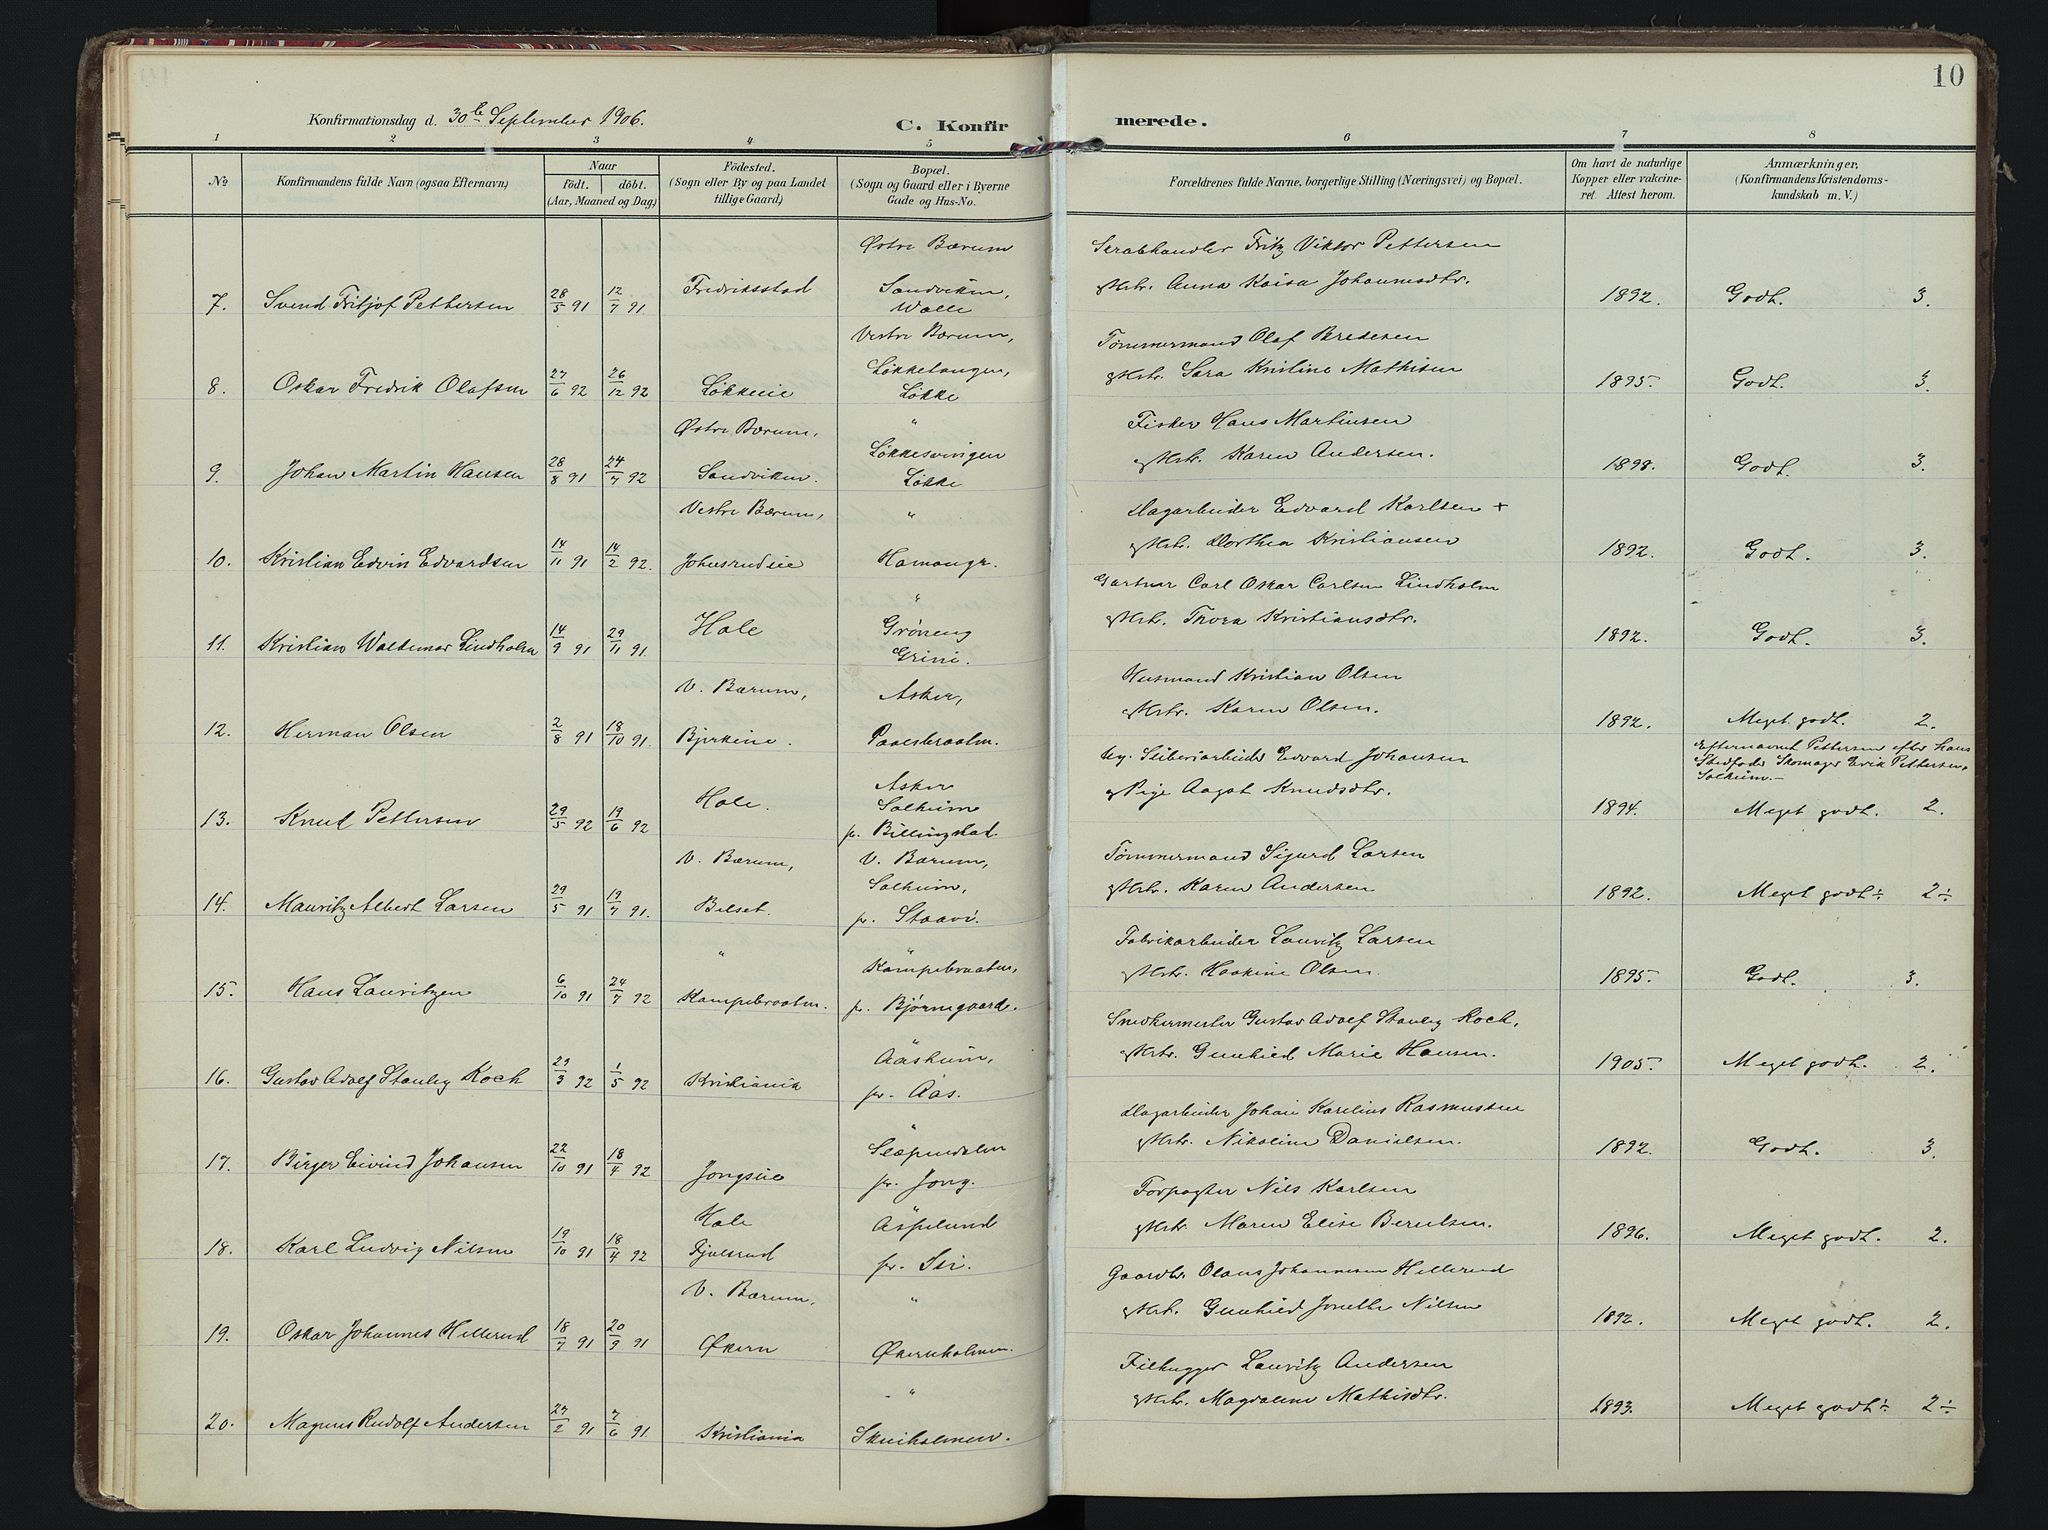 10
Konfirmationsdag d. 30te September 1906. C. Konfirmerede.
1 2 3 4 5 6 7 8
No
Konfirmandens fulde Navn (ogsaa Efternavn)
Naar
födt. döbt.
(Aar, Maaned og Dag)
Födested.
(Sogn eller By og paa Landet
tillige Gaard)
Bopæl.
(Sogn og Gaard eller i Byerne
Gade og Hus-No.
Forældrenes fulde Navne, borgerlige Stilling (Næringsvei) og Bopæl.
Om havt de naturlige
Kopper eller vakcine-
ret. Attest herom.
Anmærkninger,
(Konfirmandens Kristendoms-
kundskab m. V.)
Østre Bærum Skrabhandler Fritz Viktor Pettersen
7. Svend Fritjof Pettersen 28/5 91 12/7 91. Fredriksstad Sandviken, Walle og Hstr. Anna Kaisa Johannesdtr. 1892. Godt. 3.
Vestre Bærum, Tømmermand Olaf Bredesen
8. Oskar Fredrik Olafsen 27/6 92 26/12 92 Løkkeie Løkketangen, Løkke og Hstr. Sara Kristine Mathisen 1895. Godt. 3.
Østre Bærum, " Fisker Hans Martinsen
9. Johan Martin Hansen 28/8 91 24/7 92 Sandviken. Løkkesvingen Løkke og Hstr. Karen Andersen. 1898. Godt. 3.
Vestre Bærum, " Dagarbeider Edvard Karlsen +
10. Kristian Edvin Edvardsen 14/11 91 14/2 92. Johnsrudeie Hamangr. og Hstr. Dorthea Kristiansen 1892. Godt. 3.
" Gartner Carl Oskar Carlsen Lindholm
11. Kristian Waldemar Lindholm 14/9 91 29/11 91. Hole Grøneng Grini. og Hstr. Thora Kristiansdtr. 1892. Godt. 3.
V. Bærum, Asker, Husmand Kristian Olsen
12. Herman Olsen 2/8 91 18/10 91. Bjerkeie. Paalsbraatn. og Hstr. Karen Olsen. 1892. Meget godt. 2.
Efternavnet Pettersen efter hans
Stedfader Skomager Erik Pettersen,
Solheim.-
Asker Ug. Sliberiarbeider Edvard Johansen
13. Knud Pettersen 29/5 92 19/6 92 Hole. Solheim pr. Billingstad. og Pige Aagot Knudsdtr. 1894. Meget godt. 2.
V. Bærum, V. Bærum, Tømmermand Sigurd Larsen
14. Mauritz Albert Larsen 29/5 91 19/7 91. Belset. Solheim, pr. Staavi. og Hstr. Karen Andersen 1892. Meget godt ÷ 2÷
" " Fabrikarbeider Lauritz Larsen
15. Hans Lauritzen 6/10 91 24/7 92 Kampebraatn. Kampebraatn, pr. Bjørnegaard. og Hstr. Haakine Olsen. 1895. Godt. 3.
Aasheim, Snedkermester Gustav Adolf Stanley Koch,
16. Gustav Adolf Stanley Koch 29/3 92 1/5 92 Kristiania pr. Aas. og Hstr. Gunhild Marie Hansen. 1905. Meget godt. 2.
" Dagarbeider Johan Karelius Rasmussen
17. Birger Eivind Johansen 22/10 91 18/4 92 Jongseie Slæpendalen pr. Jong. og Hstr. Nikoline Danielsen. 1892. Godt. 3.
Hole Aspelund Forpagter Nils Karlsen
18. Karl Ludvig Nilsen 19/10 91 18/4 92 Fjulsrud pr. Sei. og Hstr. Maren Elise Berntsen. 1896. Meget godt. 2.
V. Bærum, " Gaardbr. Olaus Johannesen Hillerud
19. Oskar Johannes Hillerud 18/7 91 20/9 91 Økern Økernholmen. og Hstr. Gunhild Jonette Nilsen 1892. Meget godt. 2.
" Filhugger Lauritz Andersen
20. Magnus Rudolf Andersen 27/2 91 7/6 91. Kristiania Skuiholmen. og Hstr. Magdalene Mathisdtr. 1893. Meget godt ÷ 2÷